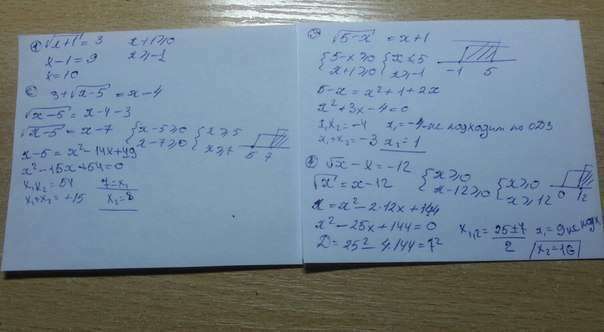 1) √x+1 = 3   x+1≥0
x-1=9   x≥-1
x=10
3+√x-5 = x-4
√x-5 = x-4-3
√x-5 = x-7 { x-5≥0 { x≥5
x-7≥0   x≥7   5 7
x-5=x²-14x+49
x²-15x+54=0
x₁x₂=54
x₁+x₂=+15   x₂=8
√5-x = x+1
{ 5-x≥0 { x≤5
x+1≥0   x≥-1   -1 5
5-x=x²+1+2x
x²+3x-4=0
x₁x₂=-4   x₁=-4-не подходит по ОДЗ
x₁+x₂=-3   x₂=1
√x-x=-12
√x=x-12 { x≥0 { x≥0
x-12≥0   x≥12   0 12
x=x²-2·12x+144
x²-25x+144=0
D=25²-4·144=7²
x₁,₂=25±7/2   x₁=9 не подх
x₂=16